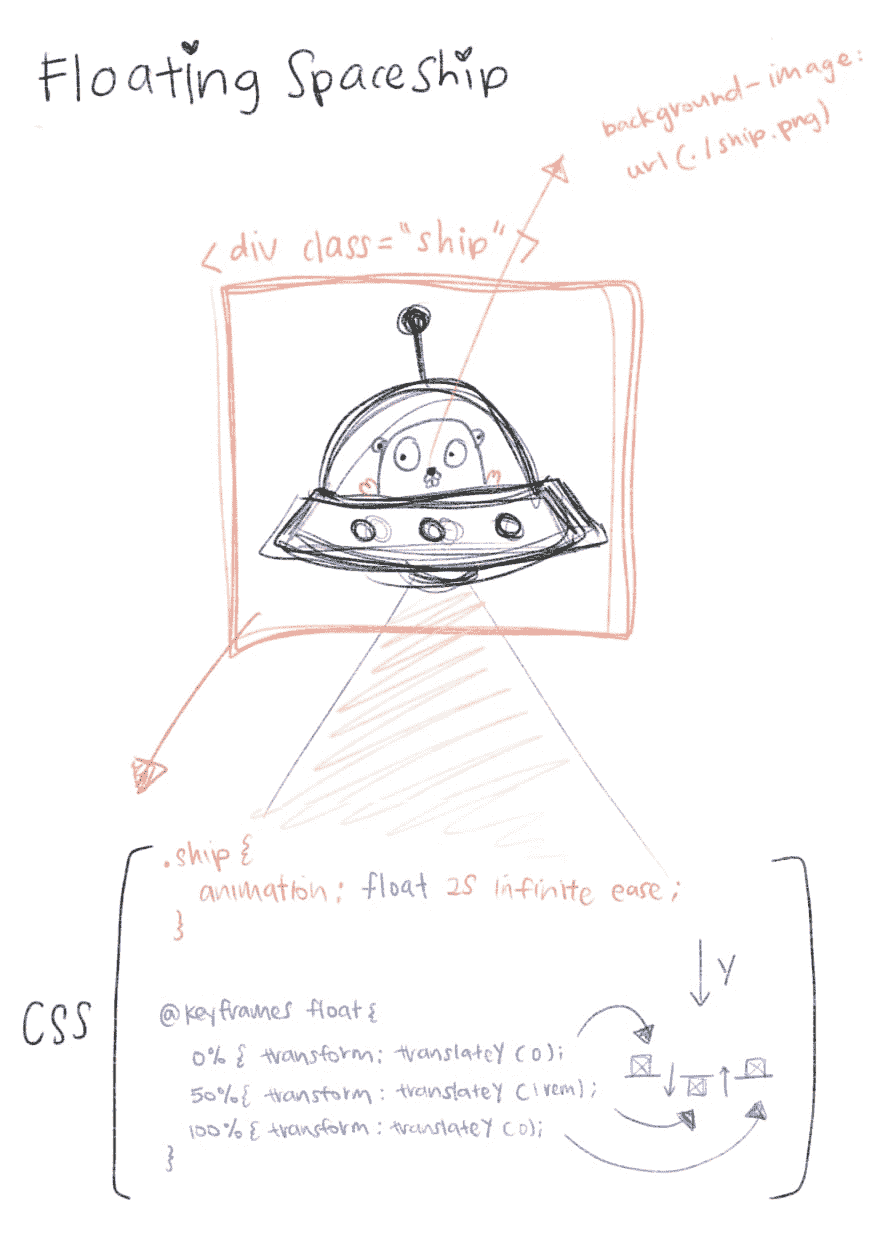 Floating Spaceship
background-image:
url(./ship.png)
<div class="ship">
.ship {
animation: float 2s infinite ease;
}
CSS
Y
@keyframes float {
0% { transform: translateY(0);
50% { transform: translateY(1rem);
100% { transform: translateY(0);
}